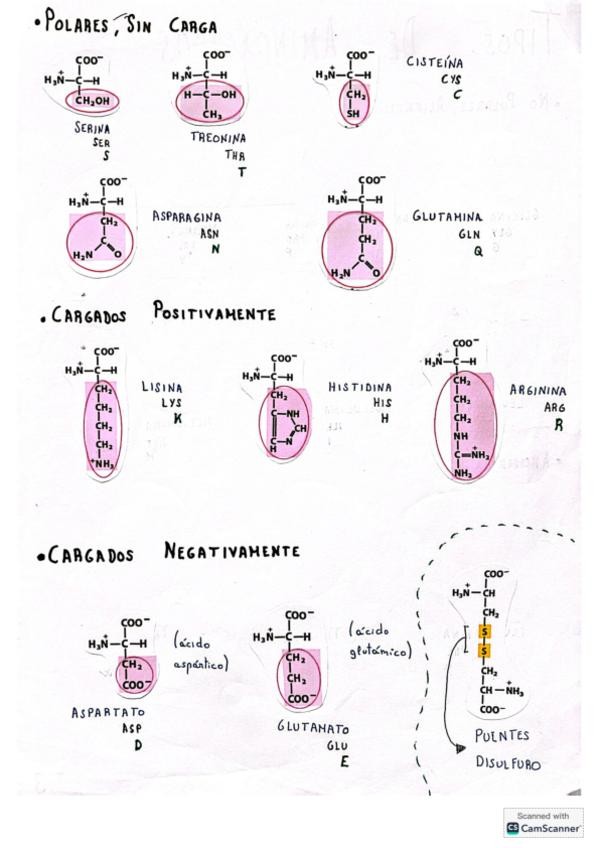 • POLARES, SIN CARGA
COO⁻
H₃N⁺–C–H
CH₂OH
SERINA
SER
S
COO⁻
H₃N⁺–C–H
H–C–OH
CH₃
TREONINA
THR
T
COO⁻
H₃N⁺–C–H
CH₂
SH
CISTEÍNA
CYS
C
COO⁻
H₃N⁺–C–H
CH₂
C
H₂N O
ASPARAGINA
ASN
N
COO⁻
H₃N⁺–C–H
CH₂
CH₂
C
H₂N O
GLUTAMINA
GLN
Q
• CARGADOS POSITIVAMENTE
COO⁻
H₃N⁺–C–H
CH₂
CH₂
CH₂
CH₂
⁺NH₃
LISINA
LYS
K
COO⁻
H₃N⁺–C–H
CH₂
C–NH
CH
C–N
H
HISTIDINA
HIS
H
COO⁻
H₃N⁺–C–H
CH₂
CH₂
CH₂
NH
C=NH₂⁺
NH₂
ARGININA
ARG
R
• CARGADOS NEGATIVAMENTE
COO⁻
H₃N⁺–C–H
CH₂
COO⁻
(ácido
aspártico)
ASPARTATO
ASP
D
COO⁻
H₃N⁺–C–H
CH₂
CH₂
COO⁻
(ácido
glutámico)
GLUTAMATO
GLU
E
COO⁻
H₃N⁺–CH
CH₂
S
S
CH₂
CH–NH₃⁺
COO⁻
PUENTES
DISULFURO
Scanned with
CS CamScanner